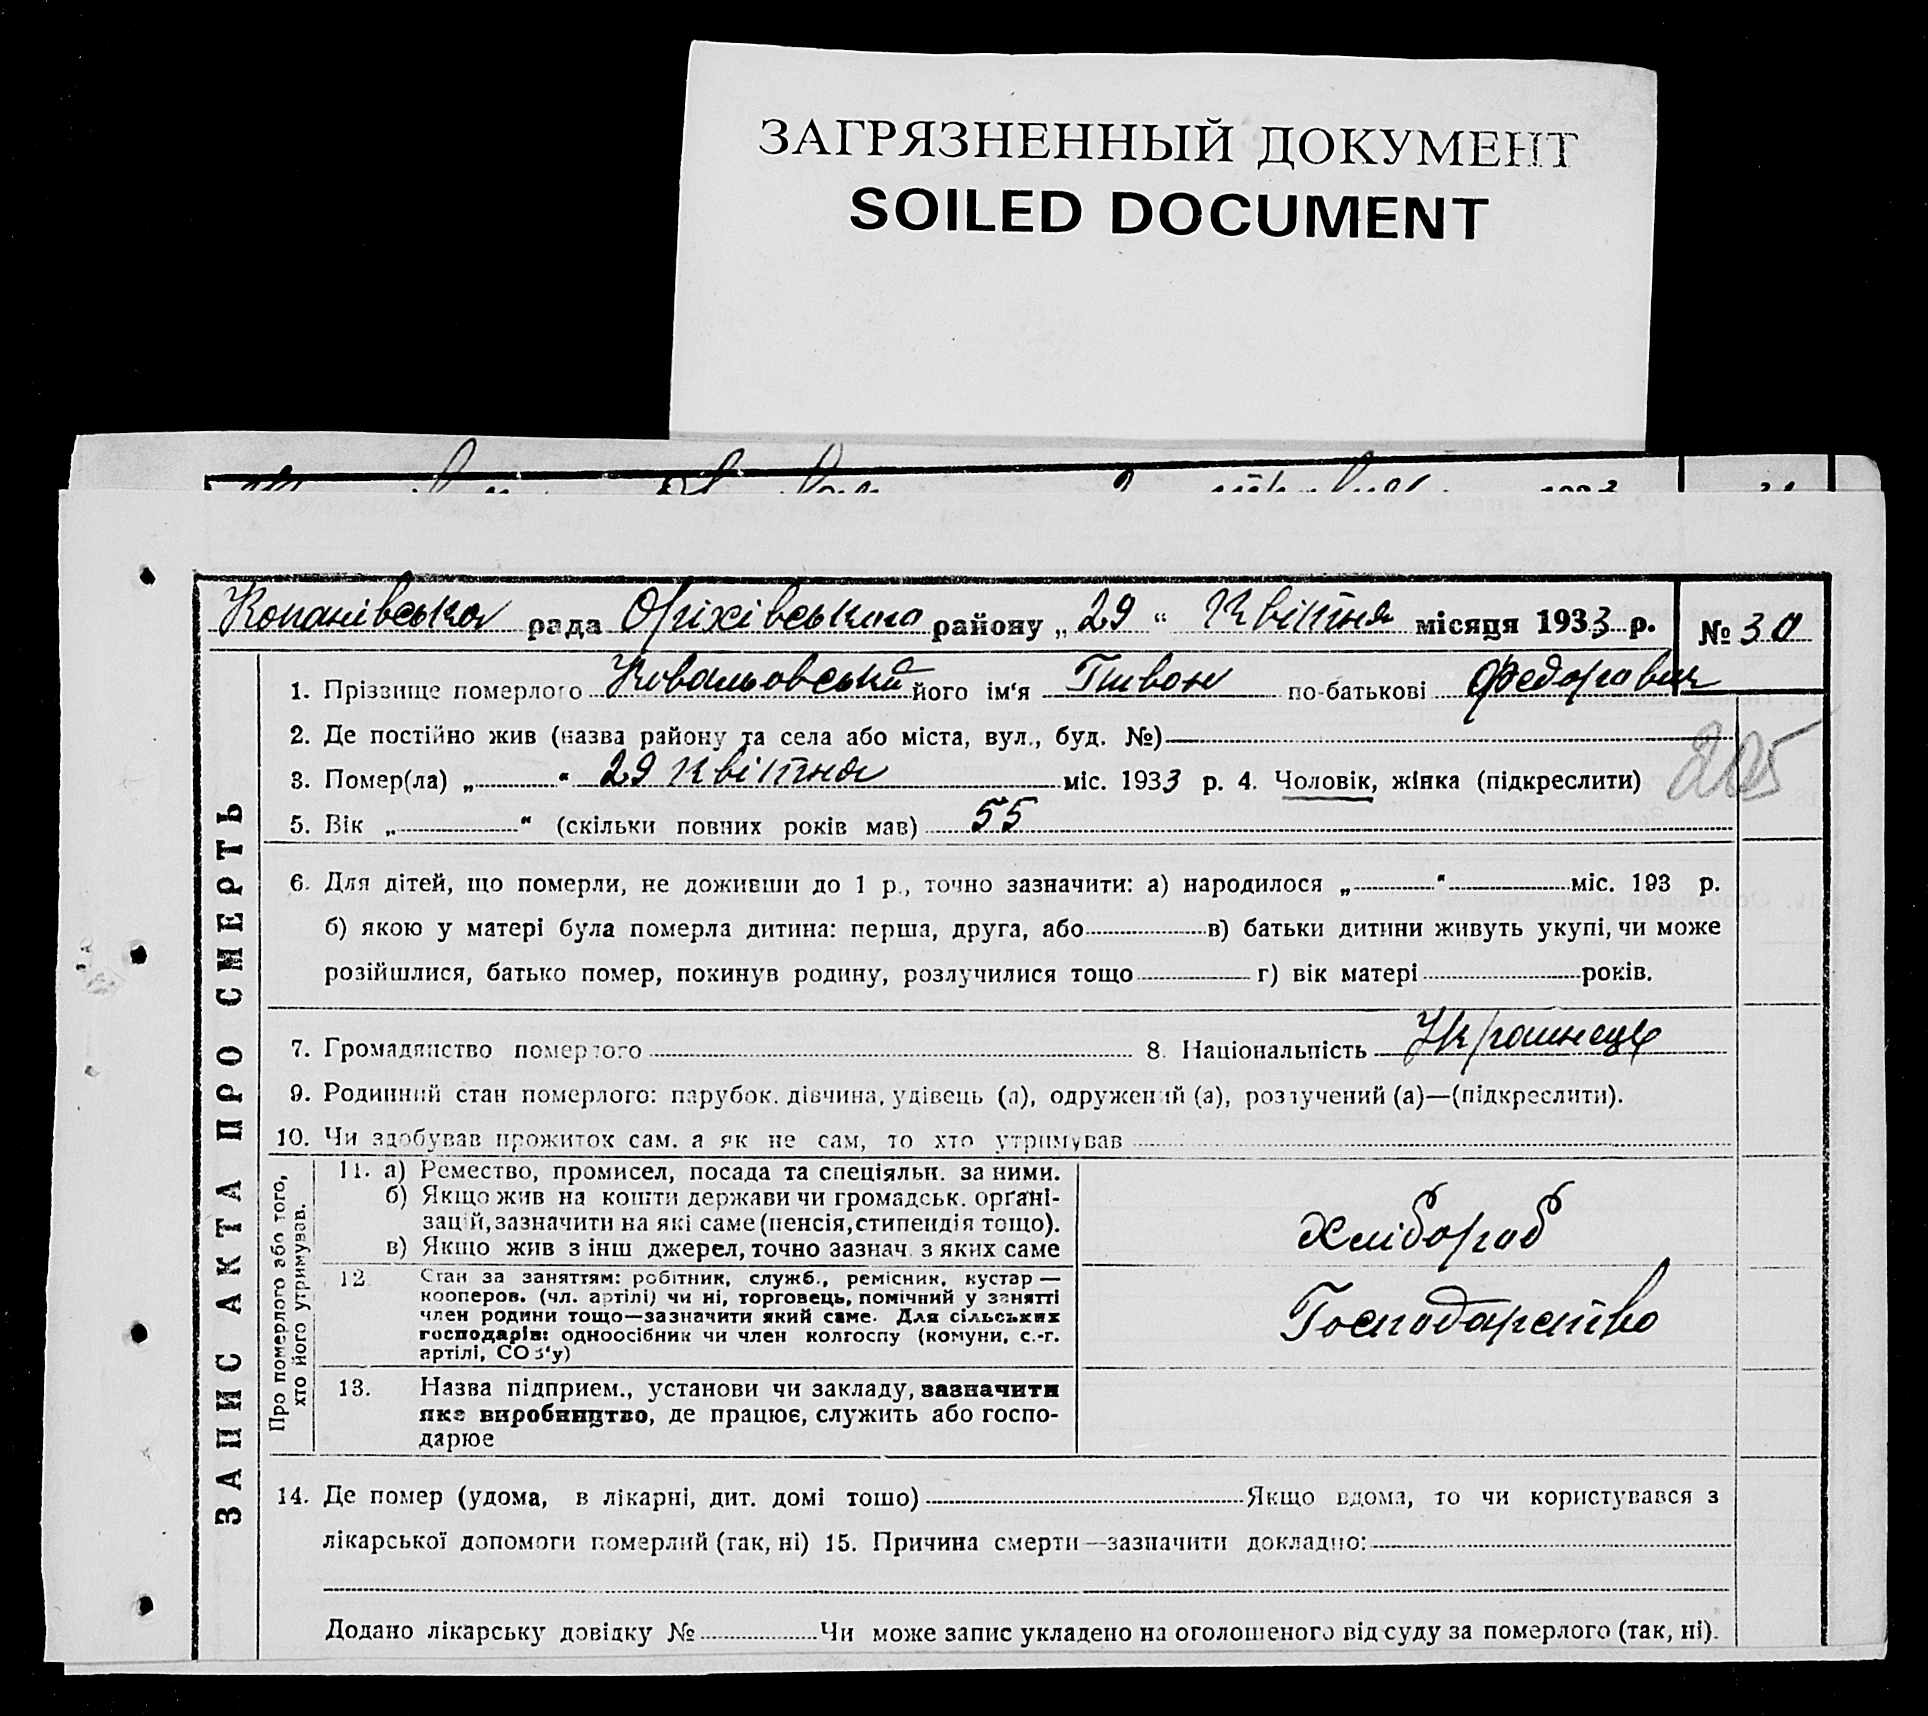 ЗАГРЯЗНЕННЫЙ ДОКУМЕНТ
SOILED DOCUMENT
Копанівська рада Оріхівського району „29“ Квітня місяця 1933 р. № 30
1. Прізвище померлого Ковальовський його ім'я по-батькові Федорович
2. Де постійно жив (назва району та села або міста, вул., буд. №)
3. Помер(ла) „ “ 29 квітня міс. 1933 р. 4. Чоловік, жінка (підкреслити)
205
5. Вік „ “ (скільки повних років мав) 55
6. Для дітей, що померли, не доживши до 1 р., точно зазначити: а) народилося „ “ міс. 193 р.
б) якою у матері була померла дитина: перша, друга, або в) батьки дитини живуть укупі, чи може
розійшлися, батько помер, покинув родину, розлучилися тощо г) вік матері років.
7. Громадянство померлого 8. Національність Українець
9. Родинний стан померлого: парубок. дівчина, удівець (а), одружений (а), розлучений (а)—(підкреслити).
10. Чи здобував прожиток сам. а як не сам, то хто утримував
ЗАПИС АКТА ПРО СМЕРТЬ
Про померлого або того,
хто його утримував.
11. а) Ремество, промисел, посада та спеціяльн. за ними.
б) Якщо жив на кошти держави чи громадськ. орґані-
зацій, зазначити на які саме (пенсія, стипендія тощо).
в) Якщо жив з інш джерел, точно зазнач. з яких саме
Хлібороб
12 Стан за заняттям: робітник, служб., ремісник, кустар —
кооперов. (чл. артілі) чи ні, торговець, помічний у занятті
член родини тощо—зазначити який саме. Для сільських
господарів: одноосібник чи член колгоспу (комуни, с.-г.
артілі, СОЗ'у)
Господарство
13. Назва підприєм., установи чи закладу, зазначити
яке виробництво, де працює, служить або госпо-
дарює
14. Де помер (удома, в лікарні, дит. домі тощо) Якщо вдома, то чи користувався з
лікарської допомоги померлий (так, ні) 15. Причина смерти—зазначити докладно:
Додано лікарську довідку № Чи може запис укладено на оголошеного від суду за померлого (так, ні).